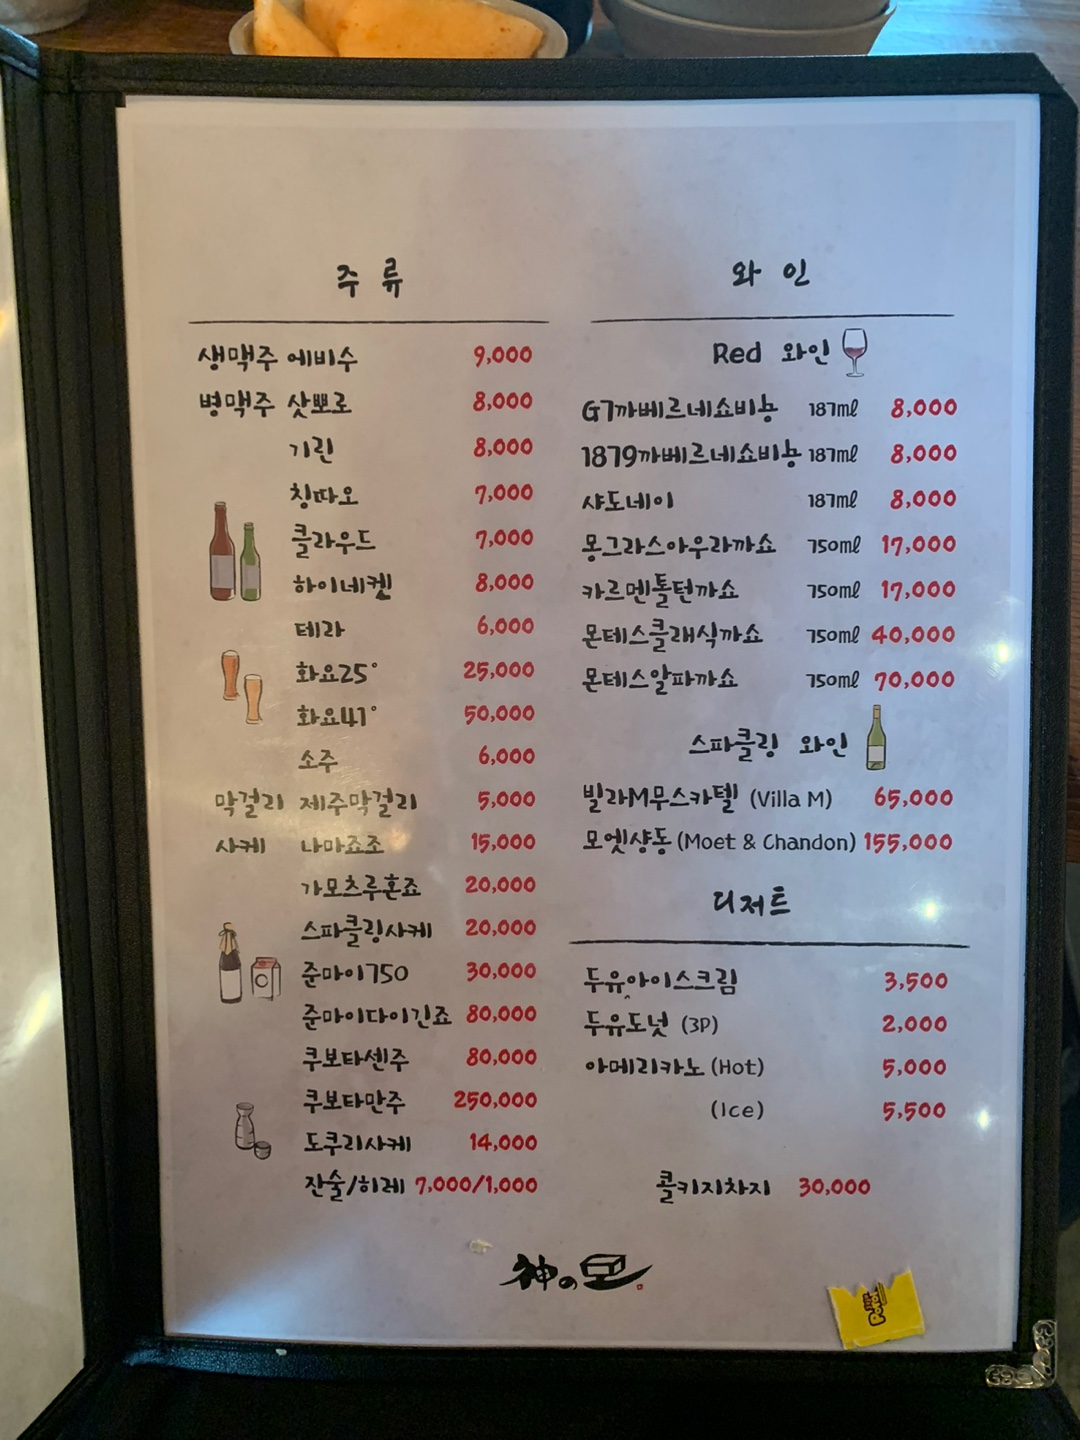 주류
생맥주 에비수 9,000
병맥주 삿뽀로 8,000
기린 8,000
칭따오 7,000
클라우드 7,000
하이네켄 8,000
테라 6,000
화요25° 25,000
화요41° 50,000
소주 6,000
막걸리 제주막걸리 5,000
사케 나마죠조 15,000
가모츠루혼죠 20,000
스파클링사케 20,000
준마이750 30,000
준마이다이긴죠 80,000
쿠보타센주 80,000
쿠보타만주 250,000
도쿠리사케 14,000
잔술/히레 7,000/1,000
와인
Red 와인
G7까베르네쇼비뇽 187ml 8,000
1879까베르네쇼비뇽 187ml 8,000
샤도네이 187ml 8,000
몽그라스아우라까쇼 750ml 17,000
카르멘톨턴까쇼 750ml 17,000
몬테스클래식까쇼 750ml 40,000
몬테스알파까쇼 750ml 70,000
스파클링 와인
빌라M무스카텔 (Villa M) 65,000
모엣샹동 (Moet & Chandon) 155,000
디저트
두유아이스크림 3,500
두유도넛 (3P) 2,000
아메리카노 (Hot) 5,000
(Ice) 5,500
콜키지차지 30,000
神の모